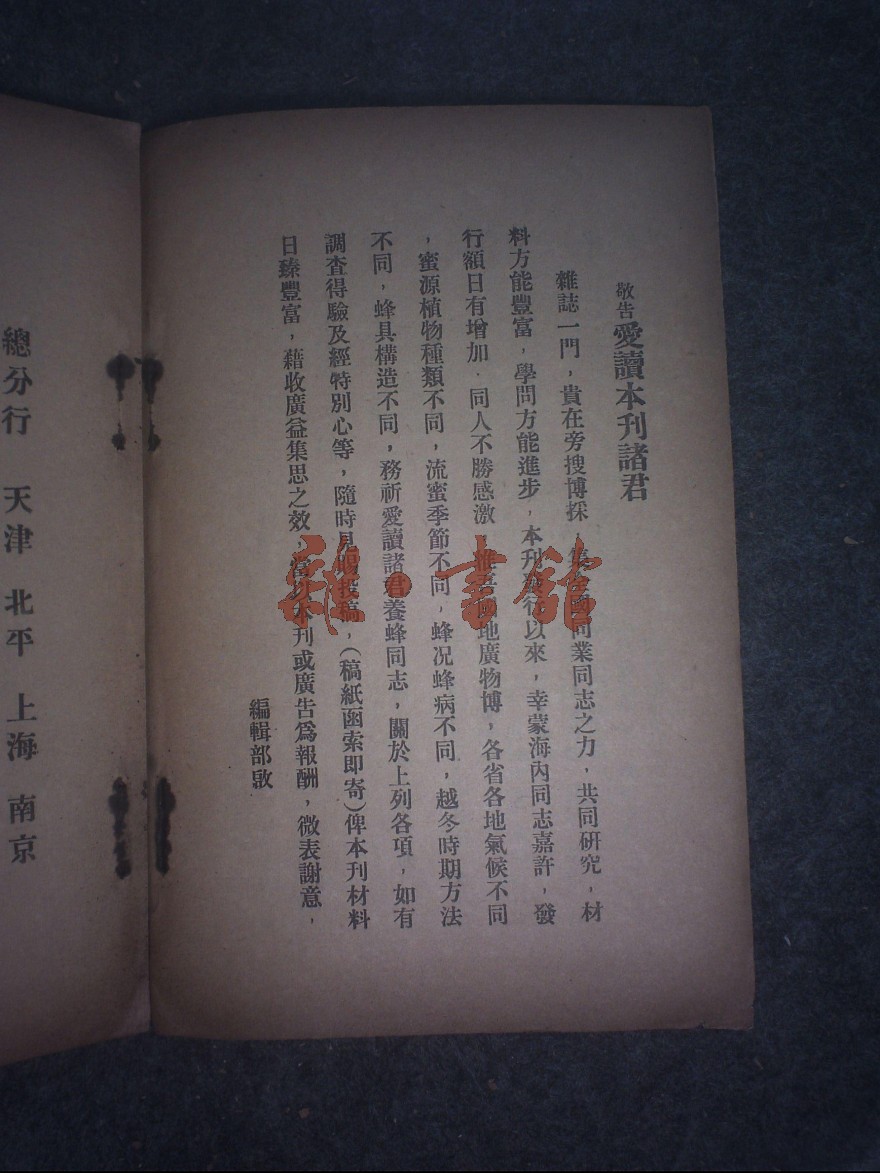 敬告愛讀本刊諸君
雜誌一門，貴在旁搜博採，集全國同業同志之力，共同研究，材
料方能豐富，學問方能進步，本刊發行以來，幸蒙海內同志嘉許，發
行額日有增加．同人不勝感激，惟吾國地廣物博，各省各地氣候不同
，蜜源植物種類不同，流蜜季節不同，蜂況蜂病不同，越冬時期方法
不同，蜂具構造不同，務祈愛讀諸君養蜂同志，關於上列各項，如有
調查得驗及經特別心等，隨時見賜投稿，（稿紙函索即寄）俾本刊材料
日臻豐富，藉收廣益集思之效，當以本刊或廣告爲報酬，微表謝意，
編輯部啟
總分行 天津 北平 上海 南京
雜·書館